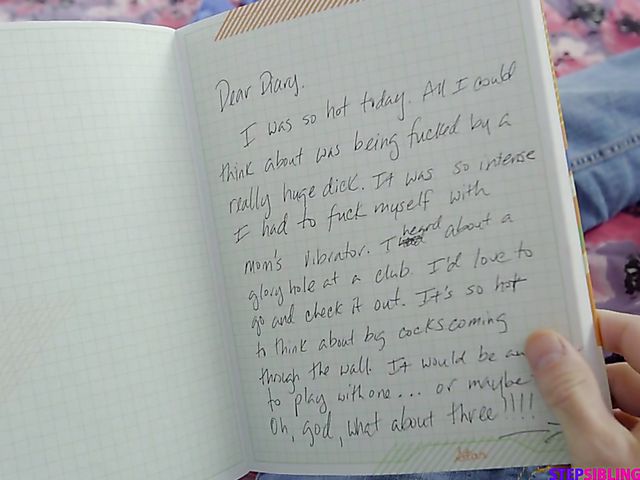 Dear Diary.
I was so hot today. All I could
think about was being fucked by a
really huge dick. It was so intense
I had to fuck myself with
mom's vibrator. I heard about a
glory hole at a club. I'd love to
go and check it out. It's so hot
to think about big cocks coming
through the wall. It would be
to play with one... or maybe
Oh, god, what about three!!!!
STEPSIBLING